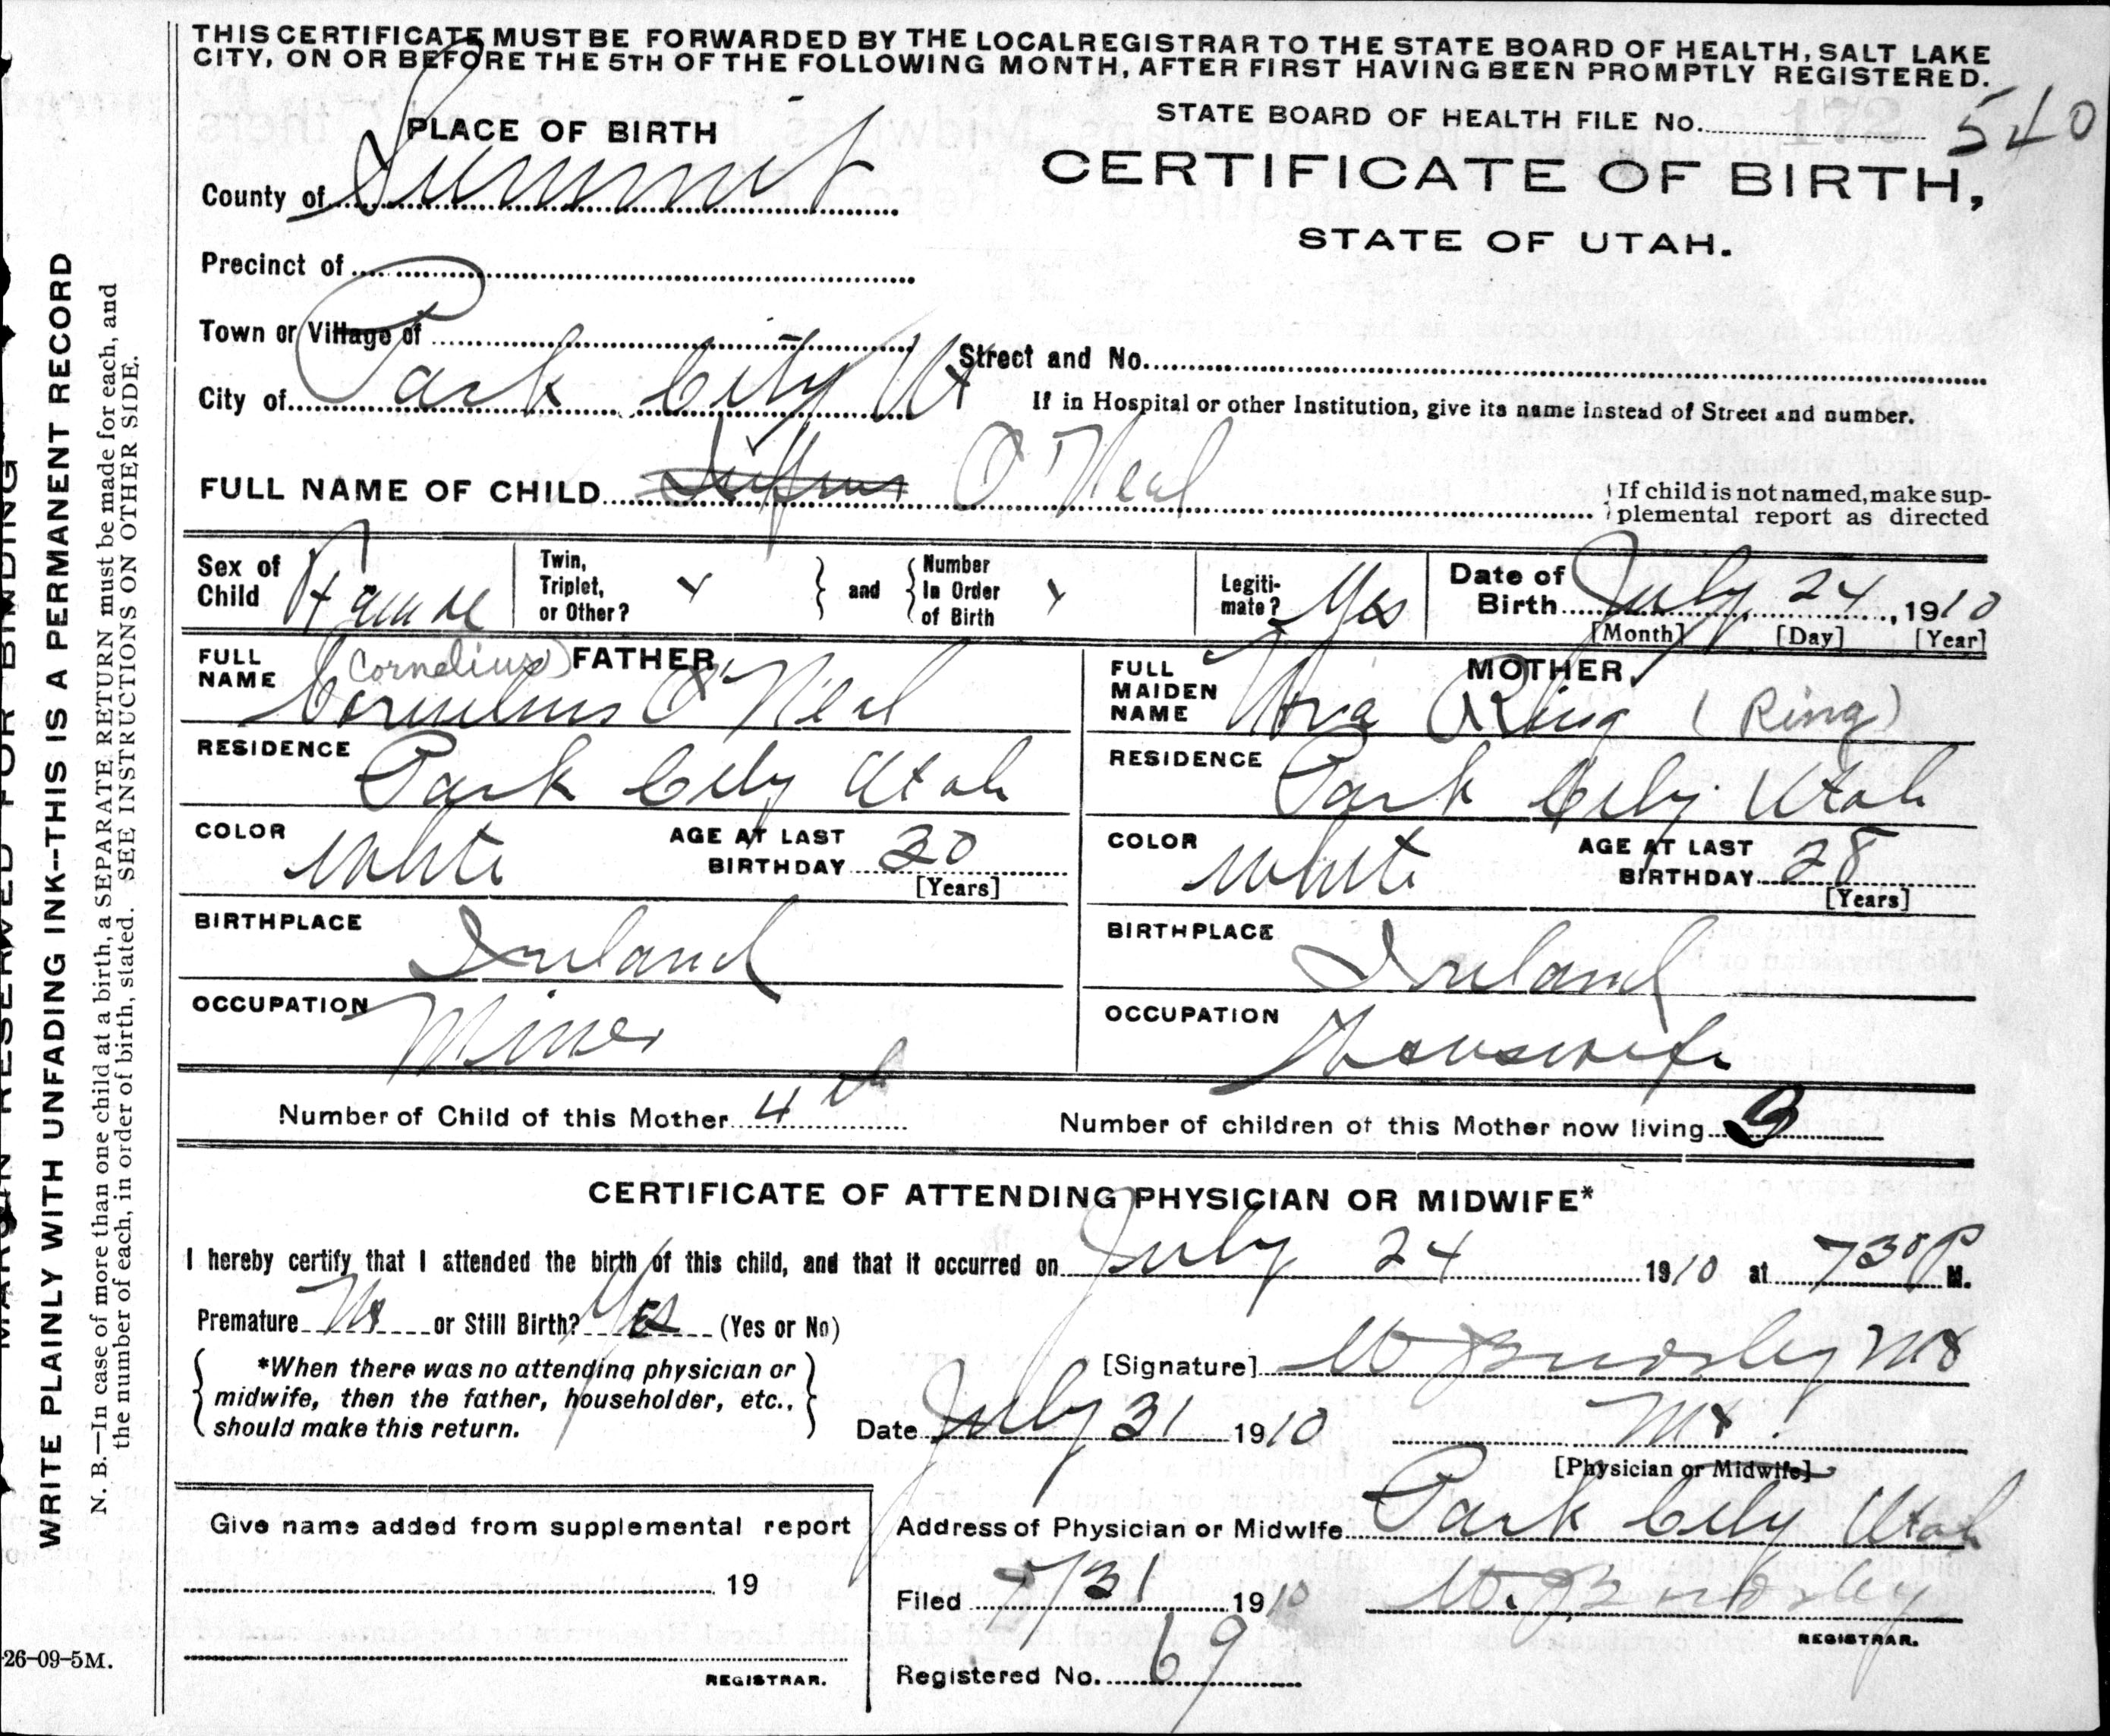 THIS CERTIFICATE MUST BE FORWARDED BY THE LOCAL REGISTRAR TO THE STATE BOARD OF HEALTH, SALT LAKE
CITY, ON OR BEFORE THE 5TH OF THE FOLLOWING MONTH, AFTER FIRST HAVING BEEN PROMPTLY REGISTERED.
STATE BOARD OF HEALTH FILE No. 172 540
PLACE OF BIRTH
CERTIFICATE OF BIRTH,
STATE OF UTAH.
County of Summit
Precinct of
Town or Village of
Street and No.
City of Park City Ut
If in Hospital or other Institution, give its name instead of Street and number.
FULL NAME OF CHILD O'Neal
If child is not named, make sup-
plemental report as directed
Sex of Child
Twin, Triplet, or Other?
and
Number In Order of Birth
Legiti-mate? Yes
Date of Birth July 24, 1910
[Month] [Day] [Year]
FATHER
FULL NAME (Cornelius) Cornelius O'Neal
RESIDENCE Park City Utah
COLOR White AGE AT LAST BIRTHDAY 30
[Years]
BIRTHPLACE Ireland
OCCUPATION Miner
MOTHER
FULL MAIDEN NAME Ring (Ring)
RESIDENCE Park City Utah
COLOR White AGE AT LAST BIRTHDAY 28
[Years]
BIRTHPLACE Ireland
OCCUPATION Housewife
Number of Child of this Mother 4th
Number of children of this Mother now living 3
CERTIFICATE OF ATTENDING PHYSICIAN OR MIDWIFE*
I hereby certify that I attended the birth of this child, and that it occurred on July 24 1910 at 730 P M.
Premature No or Still Birth? Yes (Yes or No)
*When there was no attending physician or
midwife, then the father, householder, etc.,
should make this return.
[Signature]
Date July 31 1910
[Physician or Midwife]
Give name added from supplemental report
19
REGISTRAR.
Address of Physician or Midwife Park City Utah
Filed 7/31 1910
REGISTRAR.
Registered No. 69
MARGIN RESERVED FOR BINDING
WRITE PLAINLY WITH UNFADING INK--THIS IS A PERMANENT RECORD
N. B.—In case of more than one child at a birth, a SEPARATE RETURN must be made for each, and
the number of each, in order of birth, stated. SEE INSTRUCTIONS ON OTHER SIDE.
26-09-5M.